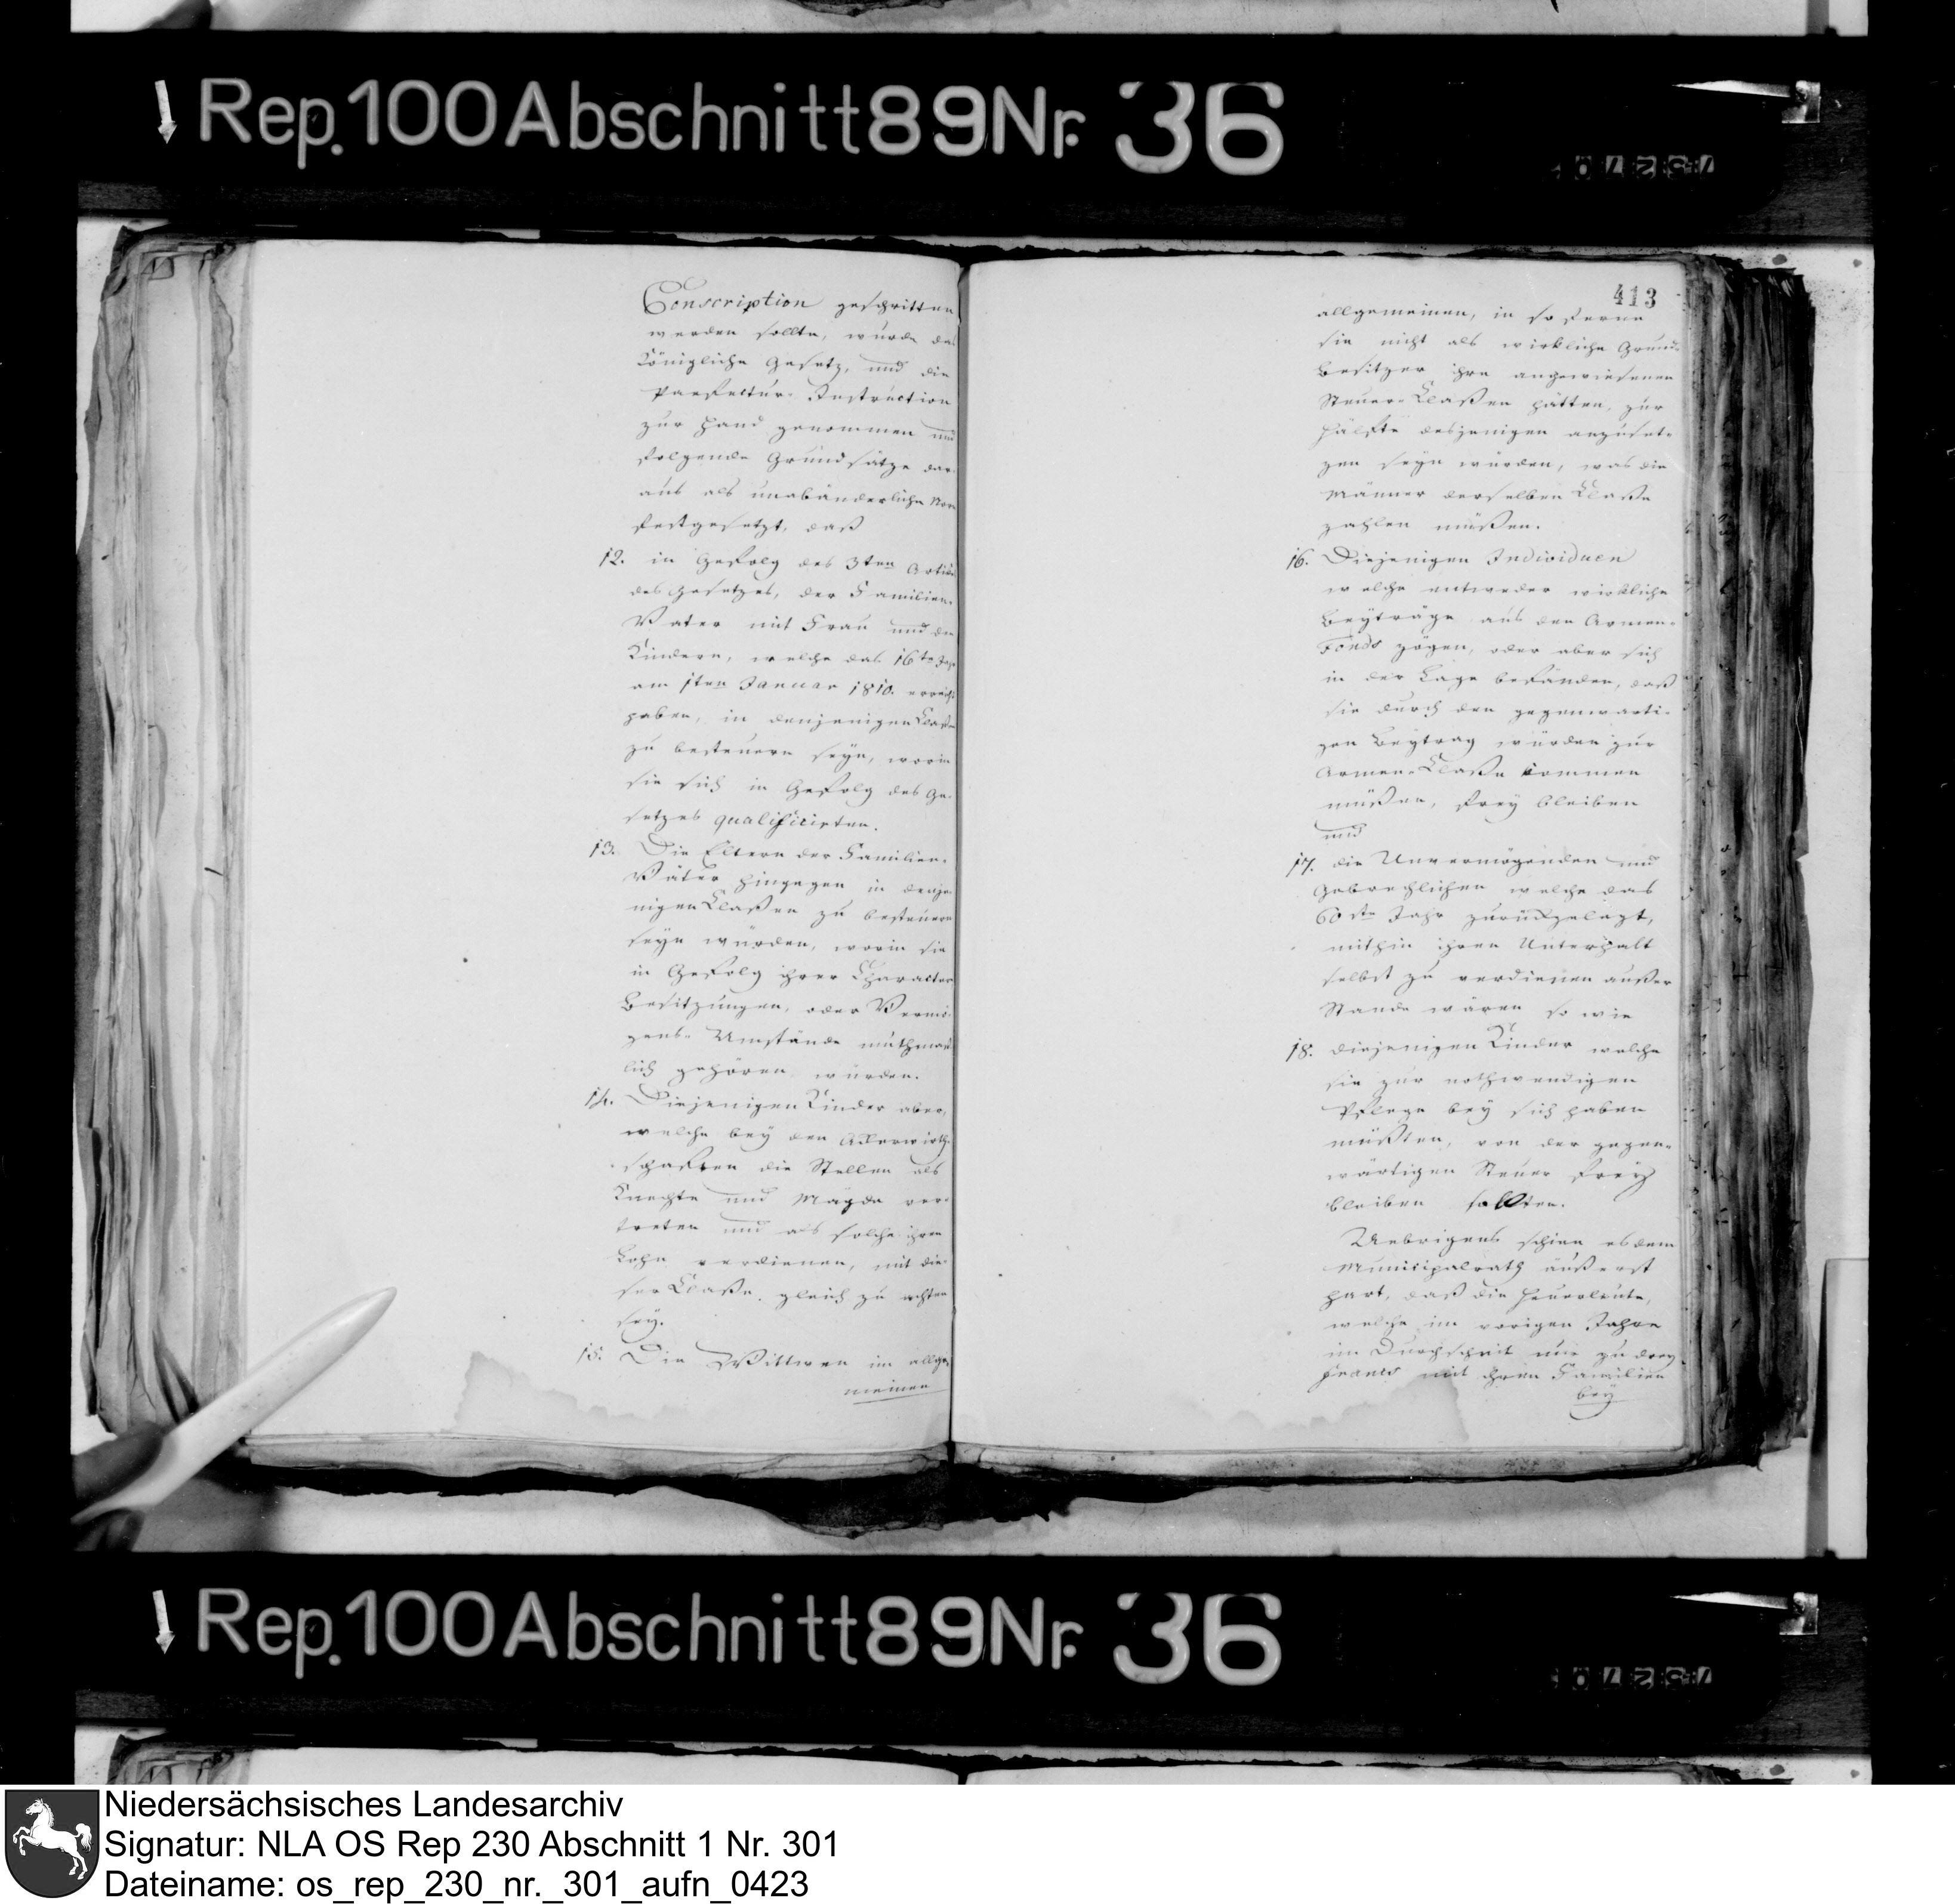 Rep. 100 Abschnitt 89 Nr. 36
Conscription geschritten
werden sollte, wurde das
Königliche Gesetz, und die
Paefectur-Instruction
zur Hand genommen und
folgende Grundsätze dar-
aus als unabänderliche Norm
festgesetzt, daß
12. in Gefolg des 3ten Artikels
des Gesetzes, der Familien-
Vater mit Frau und den
Kindern, welche das 16te Jahr
am 1ten Januar 1810. erreicht
haben, in denjenigen Klaßen
zu besteuern seyn, worin
sie sich in Gefolg des Ge-
setzes qualificirten.
13. Die Eltern der Familien-
Väter hingegen in denje-
nigen Klaßen zu besteuern
seyn würden, worin sie
in Gefolg ihrer Character
Besitzungen, oder Vermö-
gens-Umstände muthmaß-
lich gehören würden.
14. Diejenigen Kinder aber,
welche bey den Ackerwirth-
schaften die Stellen als
Knechte und Mägde ver-
treten und als solche ihren
Lohn verdienen, mit die-
ser Klaße, gleich zu achten
sey.
15. Die Wittwen im allge-
meinen
413
allgemeinen, in so ferne
sie nicht als wirkliche Grund-
Besitzer ihre angewiesenen
Steuer-Klaßen hätten, zur
Hälfte desjenigen anzuset-
zen seyn würden, was die
Männer derselben Klaße
zahlen müßen.
16. Diejenigen Individuen
welche entweder wirkliche
Beyträge aus den Armen-
Fonds zögen, oder aber sich
in der Lage befänden, daß
sie durch den gegenwarti-
gen Beytrag würden zur
Armen-Klaße kommen
müßen, frey bleiben
und
17. die Unvermögenden und
Gebrechlichen welche das
60ste Jahr zurückgelegt,
mithin ihren Unterhalt
selbst zu verdienen außer
Stande wären so wie
18. diejenigen Kinder welche
sie zur nothwendigen
Pflege bey sich haben
müßten, von der gegen-
wärtigen Steuer frey
bleiben sollten.
Uebrigens schien es dem
Municipalrath äußerst
hart, daß die Heuerleute,
welche im vorigen Jahre
im Durchschnit nur zu drey
Francs mit ihren Familien
bey
Rep. 100 Abschnitt 89 Nr. 36
Niedersächsisches Landesarchiv
Signatur: NLA OS Rep 230 Abschnitt 1 Nr. 301
Dateiname: os_rep_230_nr._301_aufn_0423